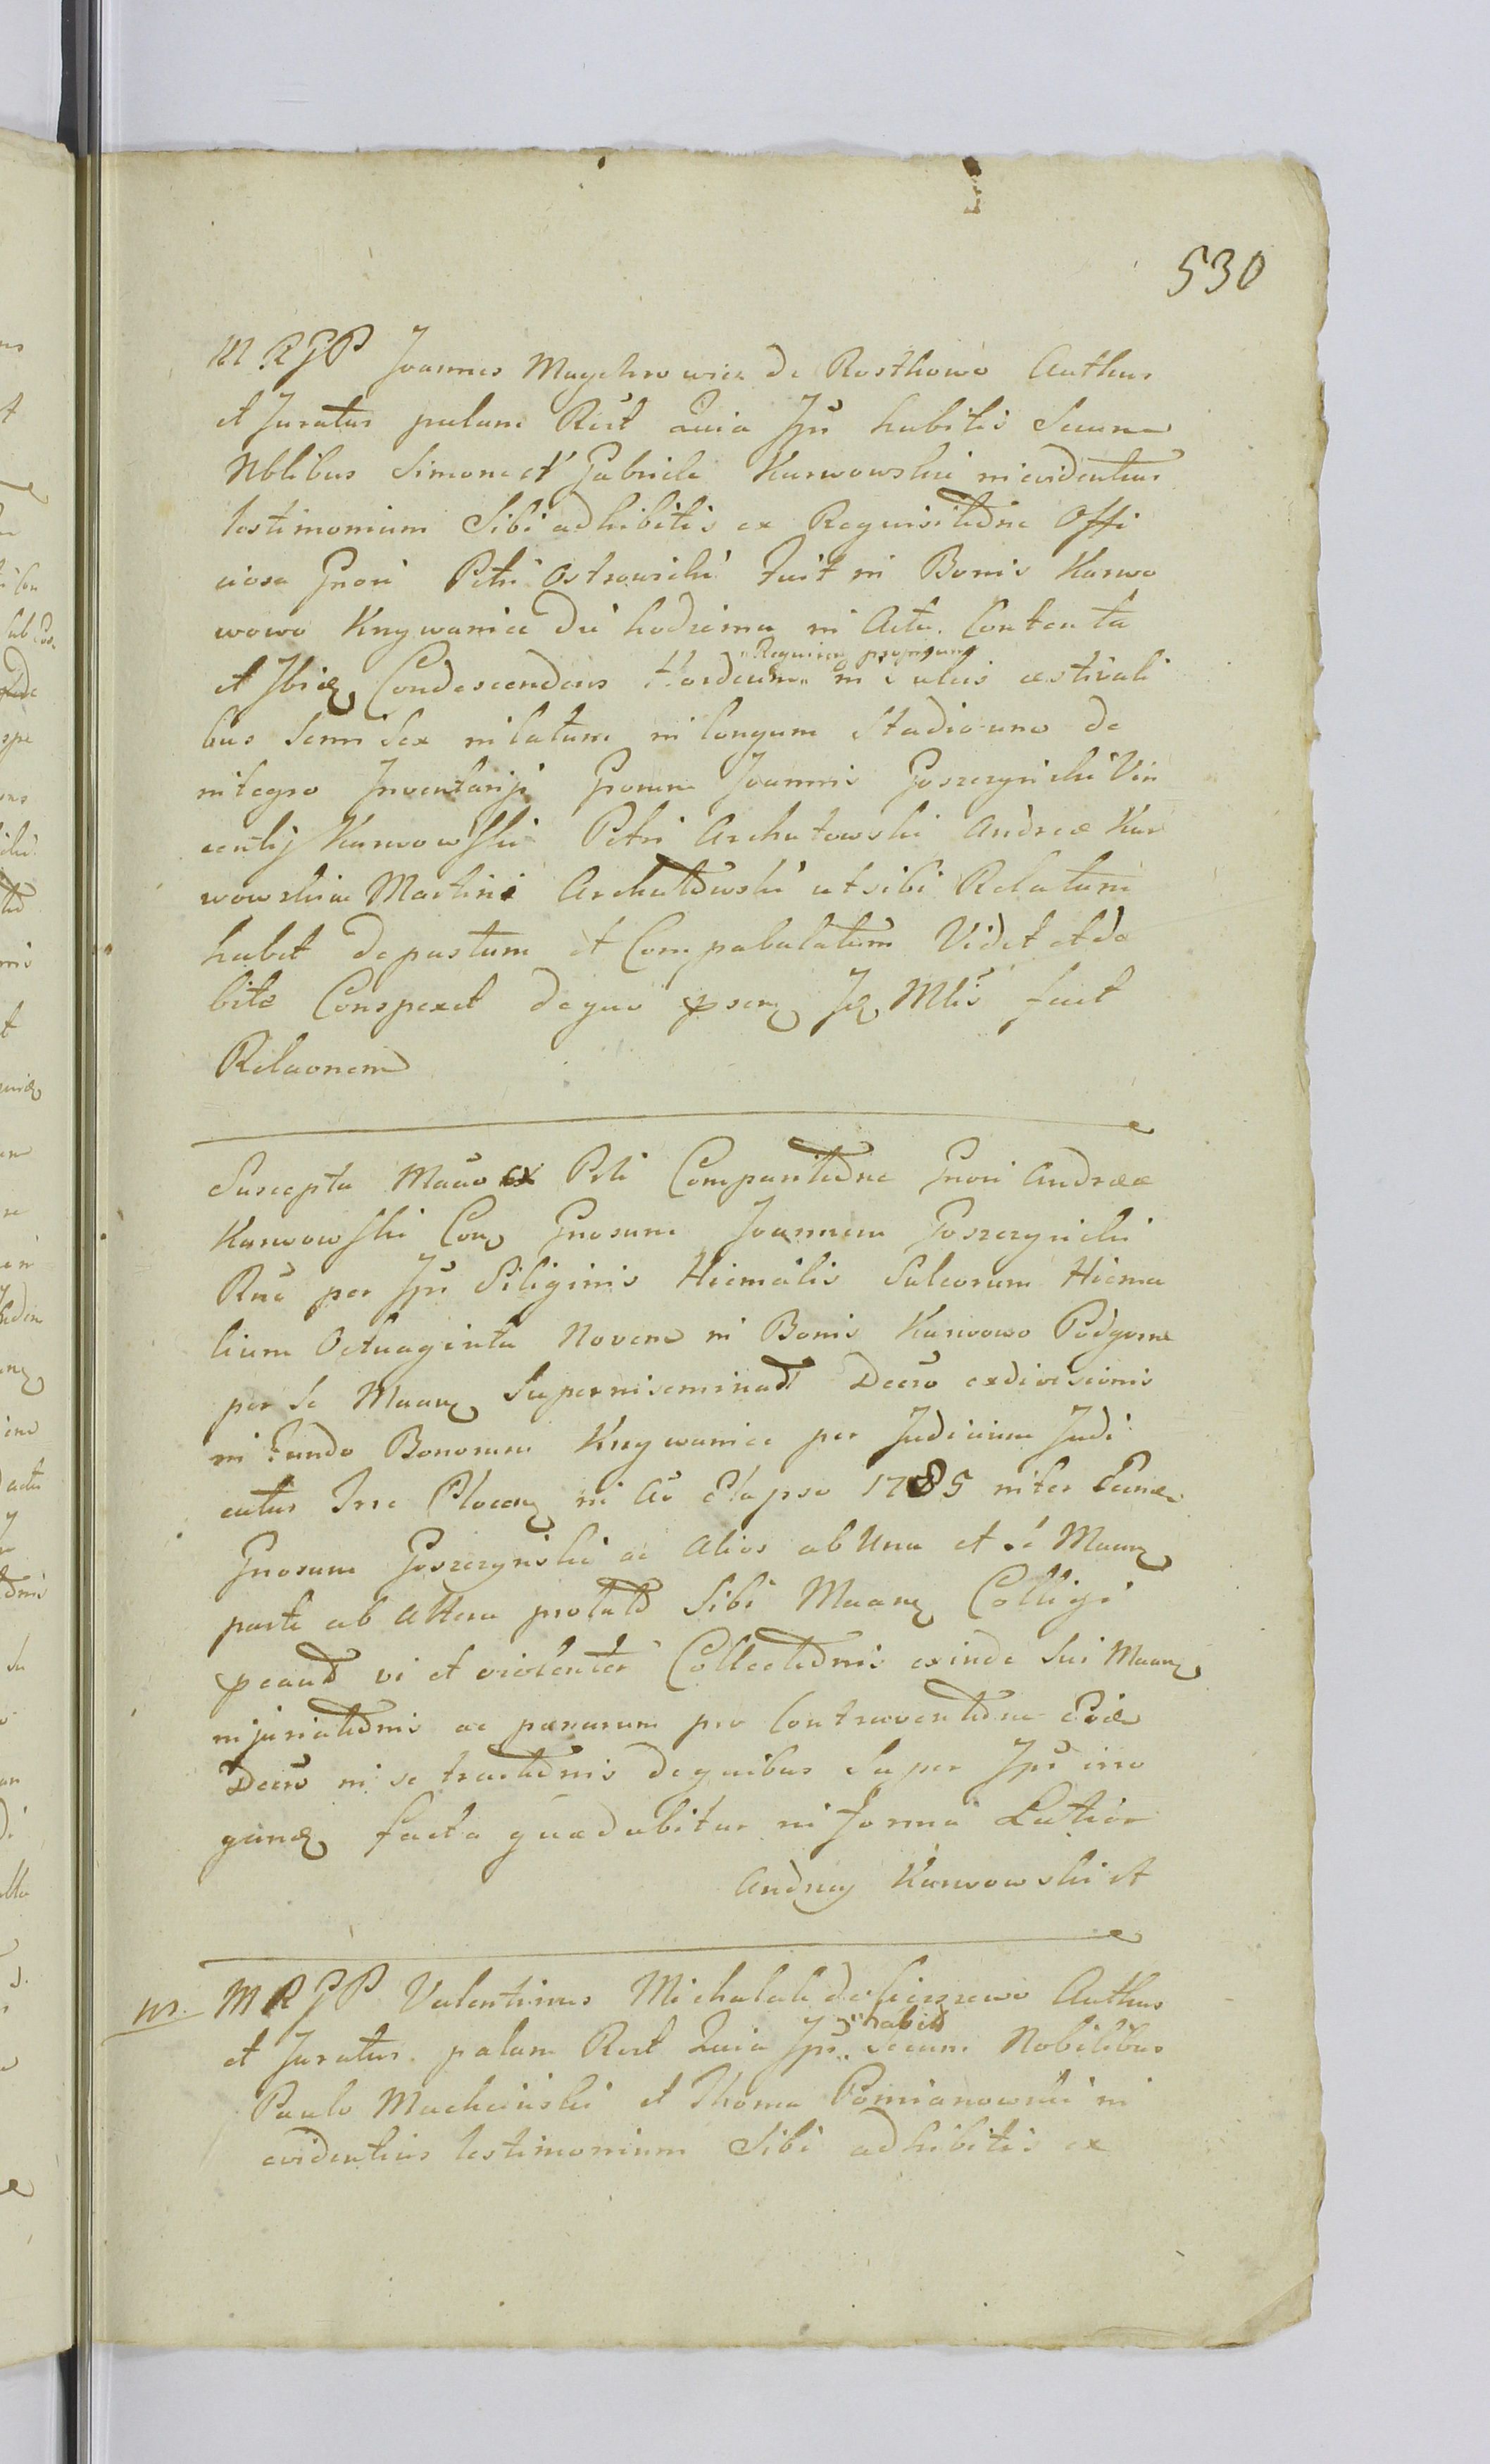 530
M R G P Joannes Maychrowicz de Rostkowo Authus
et Juratus palam Rect Quia Ips habitis Secum
Nblibus Simone et Gabriele Karwowskie in evidentius
testimonium Sibi adhibitis ex Requisitione Offi
ciosa Gnosi Petri Ostrowicki fuit in Bonis Karwo
wowo Krzywanice die hodierna in Actu Contenta
et Ibiq Condescendens Hordeum "Requirens proprium" in Sulcis æstivali
bus Semi Sex in latum in longum Stadio uno de
integro Inventarijs Gnorum Joannis Goszczynicki Vin
centij Karwowski Petri Archutowski Andreæ Kar
wowski ac Martini Archutowski ut sibi Relatum
habet depastum et Compabulatum Vidit et de
bite Conspexit de quo præsen Jd Mlis fecit
Relaonem
Suscepta Maõ ex Prti Comparitione Gnosi Andreæ
Karwowski Con Gnosum Joannem Goszczynicki
Rnê per Ips Siliginis Hiemalis Sulcorum Hiema
lium Octuaginta Novem in Bonis Karwowo Podgorne
per Se Maan Superinseminat Decro exdivisionis
in fundo Bonorum Krzywanice per Judicium Judi
catus Trrê Plocen in Aõ Elapso 1785 inter Eund
Gnosum Goszczyński ac Alios ab Una et se Maan
parte ab Altera prolato Sibi Maan Colligi
vi et violenter Collectionis exinde Sui Maan
injuriationis ac pænarum pro Contraventione
Decro in se tractionis de quibus Super Ips irro
gand facta quædabitur in forma Latior
Andrzey Karwowski A
ns. M R G P Valentinus Michalak de Authus
et Juratus palam Rect Quia Ips "habitis" Secum Nobilibus
Paulo Machciński et Thoma Pomianowski in
evidentius testimonium Sibi adhibitis ex